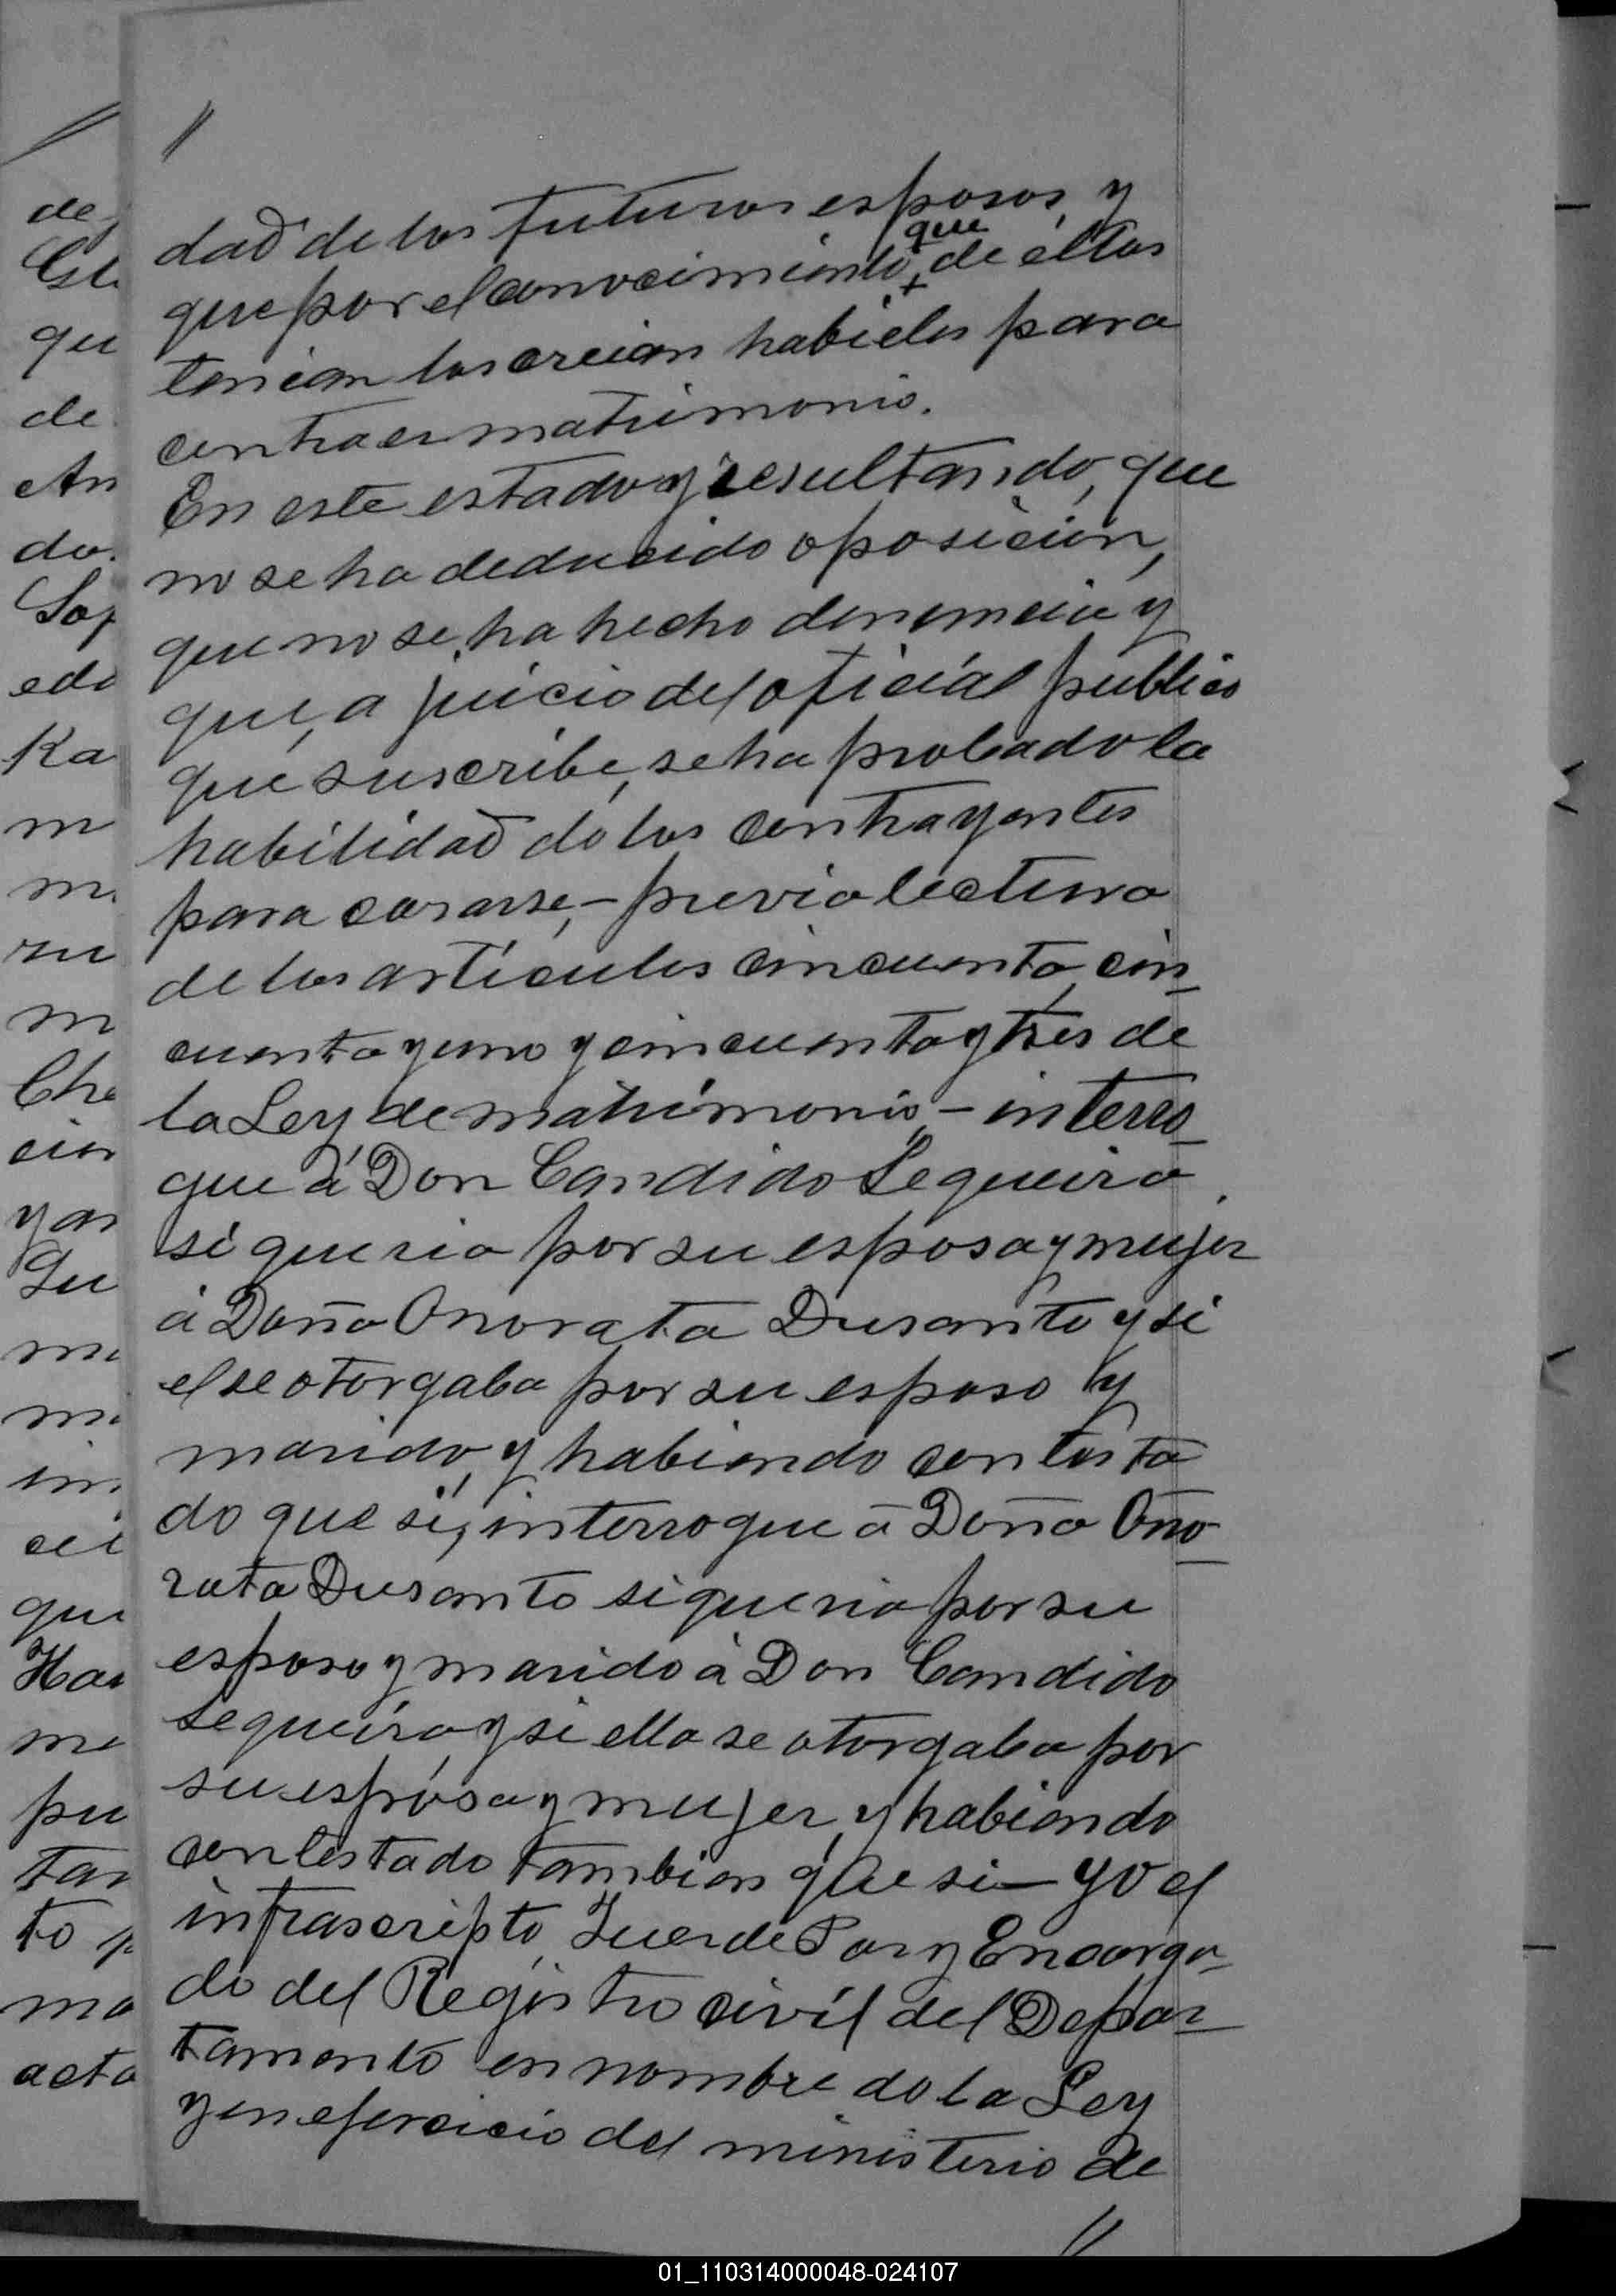 //
dad de los futuros esposos, y
que por el conocimiento que de ellos
tenian los creian habiles para
contraer matrimonio.
En este estado y resultando, que
no se ha deducido oposicion,
que no se ha hecho denuncia y
que, a juicio del oficial publico
que suscribe, se ha probado la
habilidad de los contrayentes
para casarse,- previa lectura
de los artículos cincuenta, cin_
cuenta y uno y cincuenta y tres de
la Ley de matrimonio - interro_
gue á Don Candido Sequeira
si queria por su esposa y mujer
á Doña Onorata Dusanto y si
el se otorgaba por su esposo y
marido, y habiendo contesta
do que si, interrogue á Doña Ono_
rata Dusanto si queria por su
esposo y marido á Don Candido
Sequeira y si ella se otorgaba por
su esposa y mujer, y habiendo
contestado tambien que si - yo el
infrascripto, Juez de Paz y Encarga_
do del Registro civil del Depar_
tamento en nombre de la Ley
y en ejercicio del ministerio de
//
de
qu
de
do.
Ka
m
m
Cho
yan
qui
me
pu
tan
to p
ma
acta
01_110314000048-024107